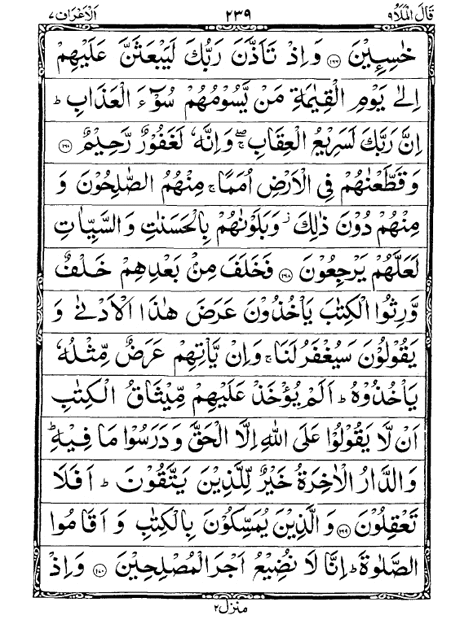 قَالَ الْمَلَاُ ٩ ٢٣٩ اَلْاَعْرَاف ٧
خٰسِـِٕيْنَ ﴿١٦٦﴾ وَاِذْ تَاَذَّنَ رَبُّكَ لَيَبْعَثَنَّ عَلَيْهِمْ
اِلٰى يَوْمِ الْقِيٰمَةِ مَنْ يَّسُوْمُهُمْ سُوْٓءَ الْعَذَابِ ؕ
اِنَّ رَبَّكَ لَسَرِيْعُ الْعِقَابِ ۖۚ وَاِنَّهٗ لَغَفُوْرٌ رَّحِيْمٌ ﴿١٦٧﴾
وَقَطَّعْنٰهُمْ فِى الْاَرْضِ اُمَمًا ۚ مِنْهُمُ الصّٰلِحُوْنَ وَ
مِنْهُمْ دُوْنَ ذٰلِكَ ۫ وَبَلَوْنٰهُمْ بِالْحَسَنٰتِ وَالسَّيِّاٰتِ
لَعَلَّهُمْ يَرْجِعُوْنَ ﴿١٦٨﴾ فَخَلَفَ مِنْۢ بَعْدِهِمْ خَلْفٌ
وَّرِثُوا الْكِتٰبَ يَاْخُذُوْنَ عَرَضَ هٰذَا الْاَدْنٰى وَ
يَقُوْلُوْنَ سَيُغْفَرُ لَنَا ۚ وَاِنْ يَّاْتِهِمْ عَرَضٌ مِّثْلُهٗ
يَاْخُذُوْهُ ؕ اَلَمْ يُؤْخَذْ عَلَيْهِمْ مِّيْثَاقُ الْكِتٰبِ
اَنْ لَّا يَقُوْلُوْا عَلَى اللّٰهِ اِلَّا الْحَقَّ وَدَرَسُوْا مَا فِيْهِ ؕ
وَالدَّارُ الْاٰخِرَةُ خَيْرٌ لِّلَّذِيْنَ يَتَّقُوْنَ ؕ اَفَلَا
تَعْقِلُوْنَ ﴿١٦٩﴾ وَالَّذِيْنَ يُمَسِّكُوْنَ بِالْكِتٰبِ وَ اَقَامُوا
الصَّلٰوةَ ؕ اِنَّا لَا نُضِيْعُ اَجْرَ الْمُصْلِحِيْنَ ﴿١٧٠﴾ وَاِذْ
منزل ٢